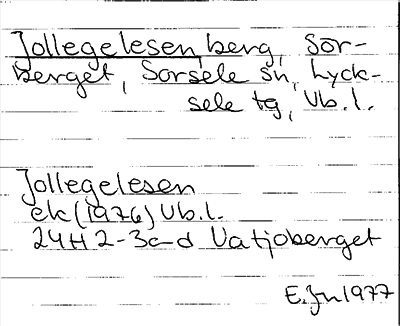 Jollegelesen, berg, Sör-
berget, Sorsele sn, Lyck-
sele tg, Vb.l.
Jollegelesen
ek (1976) Vb.l.
24H 2-3c-d Vatjoberget
E.Jn 1977